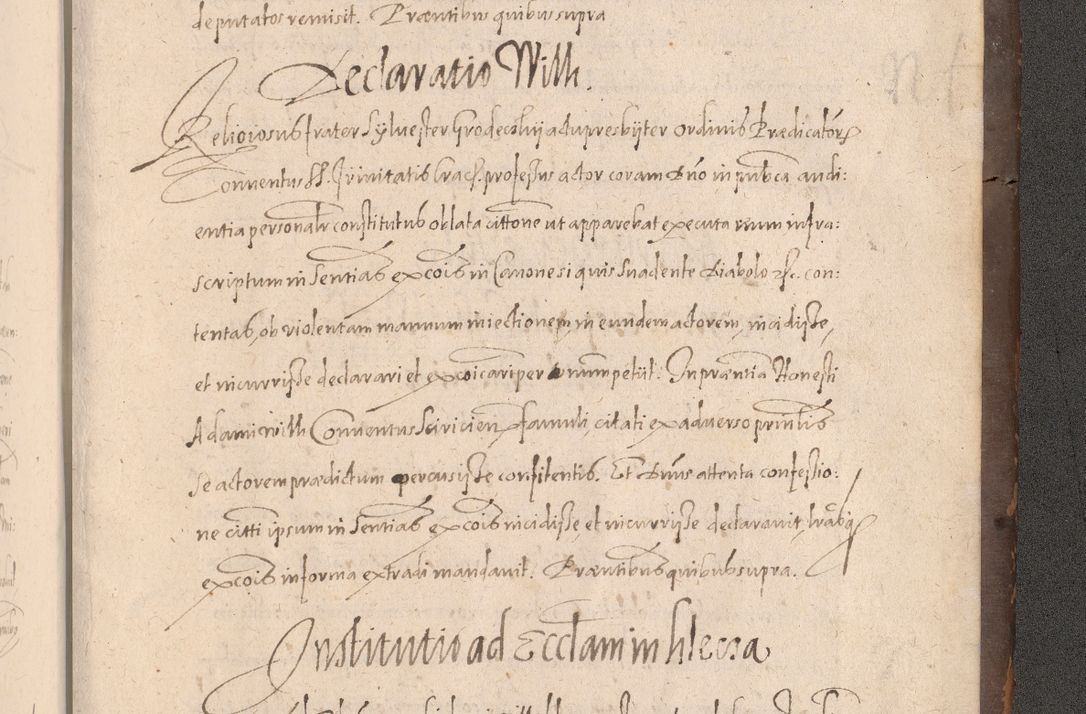 deputatos remisit. Præntibus quibus supra
Declaratio Willi.
Religiosus frater Sylvester Grodeczkij actu presbyter Ordinis Prædicatorum
Conventus SS. Trinitatis Crac. professus actor coram Dno in publca audi:
entia personalr constitutus oblata cittone ut apparebat executa reum infra:
scriptum in sentias excois in Canone si quis suadente diabolo etc. con:
tentas, ob violentam manuum iniectionem in eundem actorem, incidisse,
et incurrisse declarari et excoicari per numm petiit: In præntia Honesti
Adami Willi Conventus famuli, citati ex adverso prnlis
se actorem prædictum percusisse confitentis. Et Dnus attenta confessio:
ne citti ipsum in sentias excois incidisse, et incurrisse declaravit, lrasq
excois in forma extradi mandavit. Præntibus quibus supra.
Institutio ad Ecclam in